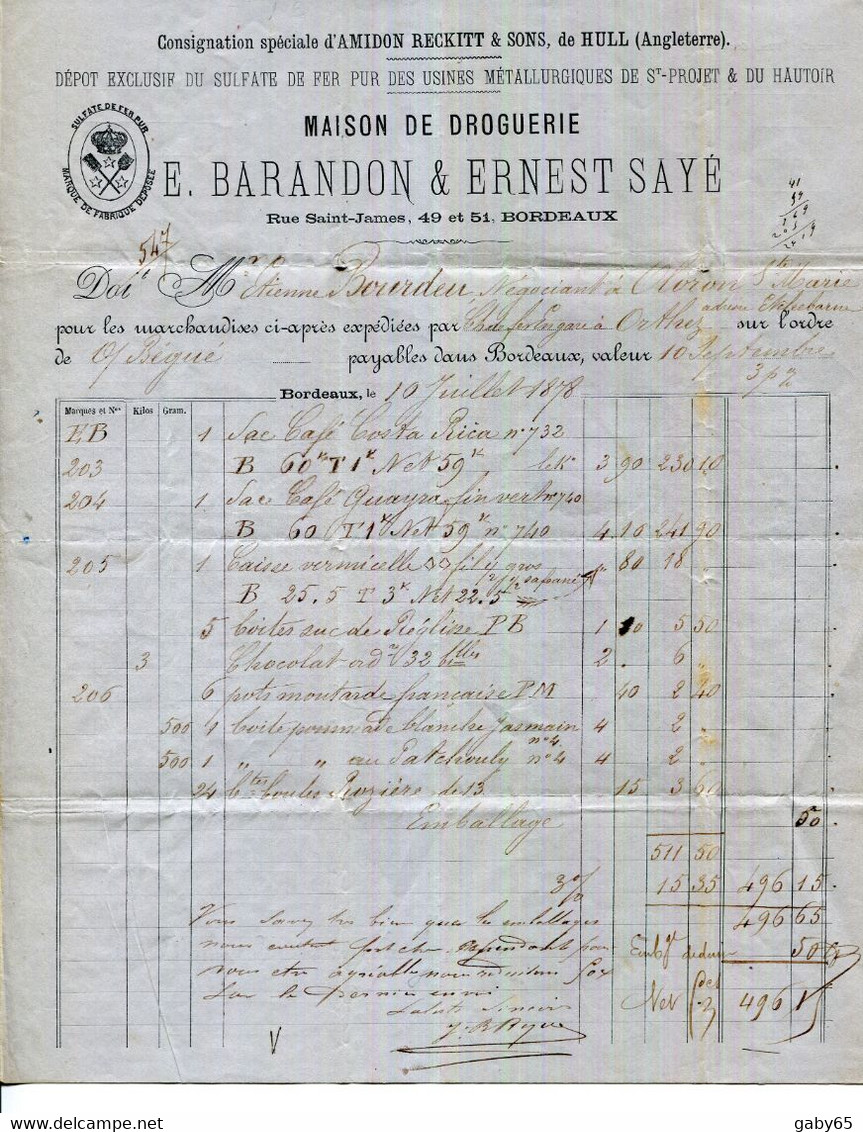 Consignation spéciale d'AMIDON RECKITT & SONS, de HULL (Angleterre).
DÉPOT EXCLUSIF DU SULFATE DE FER PUR DES USINES MÉTALLURGIQUES DE ST-PROJET & DU HAUTOIR
SULFATE DE FER PUR
MARQUE DE FABRIQUE DÉPOSÉE
MAISON DE DROGUERIE
E. BARANDON & ERNEST SAYÉ
Rue Saint-James, 49 et 51, BORDEAUX
547
Doit Mr Etienne Bourdeu Négociant à Oloron Ste Marie
pour les marchandises ci-après expédiées par Ch de fer en gare à Orthez sur l'ordre
de O/ Bégué payables dans Bordeaux, valeur 10 Septembre
Bordeaux, le 10 Juillet 1878
Marques et Nos Kilos Gram.
EB 1 Sac Café Costa Rica no 732
203 B 60 k T 1 k Net 59 k le k 3 90 230 10
204 1 Sac Café Guayra fin vert no 740
B 60 T 1 k Net 59 k no 740 4 10 241 90
205 1 Caisse vermicelle gros
B 25.5 T 3 k Net 22.5 80 18 "
5 Boites suc de Réglisse PB 1 10 5 50
3 Chocolat ord re 32 2 . 6 "
206 6 pots moutarde française PM 40 2 40
500 1 boite pommade blanche Jasmain 4 2 "
500 1 " " au Patchouly no 4 4 2 "
24 Btes boules Rozière de 13 15 3 60
Emballage 50
511 50
3 % 15 35 496 15
496 65
Vous savez très bien que les emballages
nous coutent fort cher cependant pour
vous être agréable nous
sur le dernier envoi
50
Net 496 15